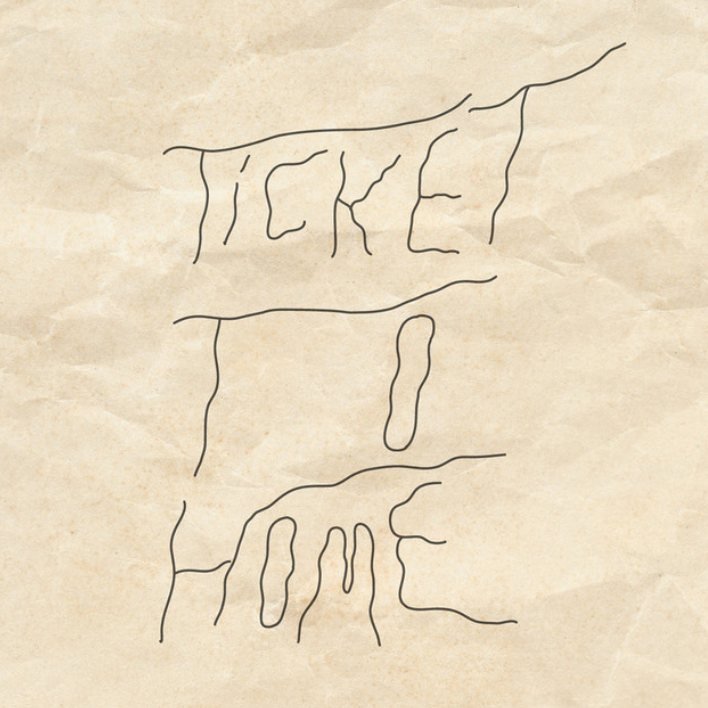 TICKET
TO
HOME